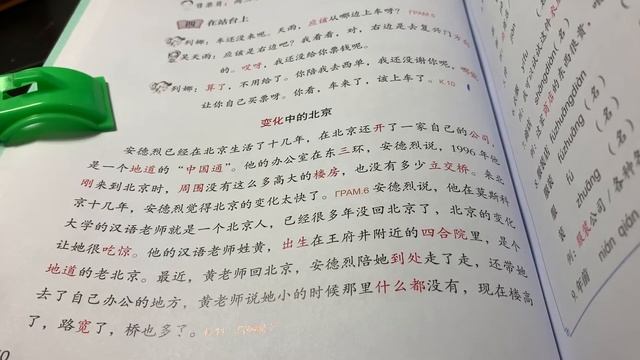 四 在站台上
列娜：车还没来呢。天雨，应该从哪边上车呀？ ГРАМ.5
吴天雨：应该是右边吧？我看看，对，右边是去复兴门方向
的。哎呀，我还没给你票钱呢。
列娜：算了，不用给了。你陪我去西单，我还没谢你呢，哪能
让你自己买票呀。你看，车来了，该上车了。 К.10
变化中的北京
安德烈已经在北京生活了十几年，在北京还开了一家自己的公司，
是一个地道的“中国通”。他的办公室在东三环，安德烈说，1996年他
刚来到北京时，周围没有这么多高大的楼房，也没有多少立交桥。来北
京十几年，安德烈觉得北京的变化太快了。ГРАМ.6 安德烈说，他在莫斯科
大学的汉语老师就是一个北京人，已经很多年没回北京了，北京的变化
让她很吃惊。他的汉语老师姓黄，出生在王府井附近的四合院里，是个
地道的老北京。最近，黄老师回北京，安德烈陪她到处走了走，还带她
去了自己办公的地方，黄老师说她小的时候那里什么都没有，现在楼高
了，路宽了，桥也多了。
fúzhuāngdiàn
fúzhuāng
（名）
（名）
（名）
fú
zhuāng
服
装
例：服装公司/各种
9. 年前
nián qián